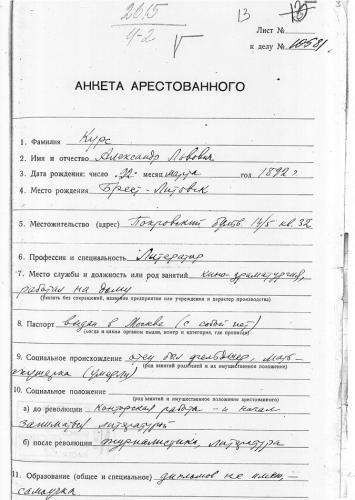 2615
4-2
13
Лист №
к делу № 10581
АНКЕТА АРЕСТОВАННОГО
1. Фамилия Курс
2. Имя и отчество Александр Львович
3. Дата рождения: число „22" месяц марта год 1892 г
4. Место рождения Брест-Литовск
5. Местожительство (адрес) Покровский бульв. 14/5 кв. 32
6. Профессия и специальность Литератор
7. Место службы и должность или род занятий кино-драматургия,
работал на дому
(указать без сокращений, название предприятия или учреждения и характер производства)
8. Паспорт выдан в Москве (с собой нет)
(когда и каким органом выдан, номер и категория, где прописан)
9. Социальное происхождение отец был фельдшер, мать –
акушерка (умерли)
(род занятий родителей и их имущественное положение)
10. Социальное положение
(род занятий и имущественное положение арестованного)
а) до революции Конторская работа – и начал
заниматься литературой
б) после революции журналистика, литература
11. Образование (общее и специальное) дипломов не имею, –
самоучка